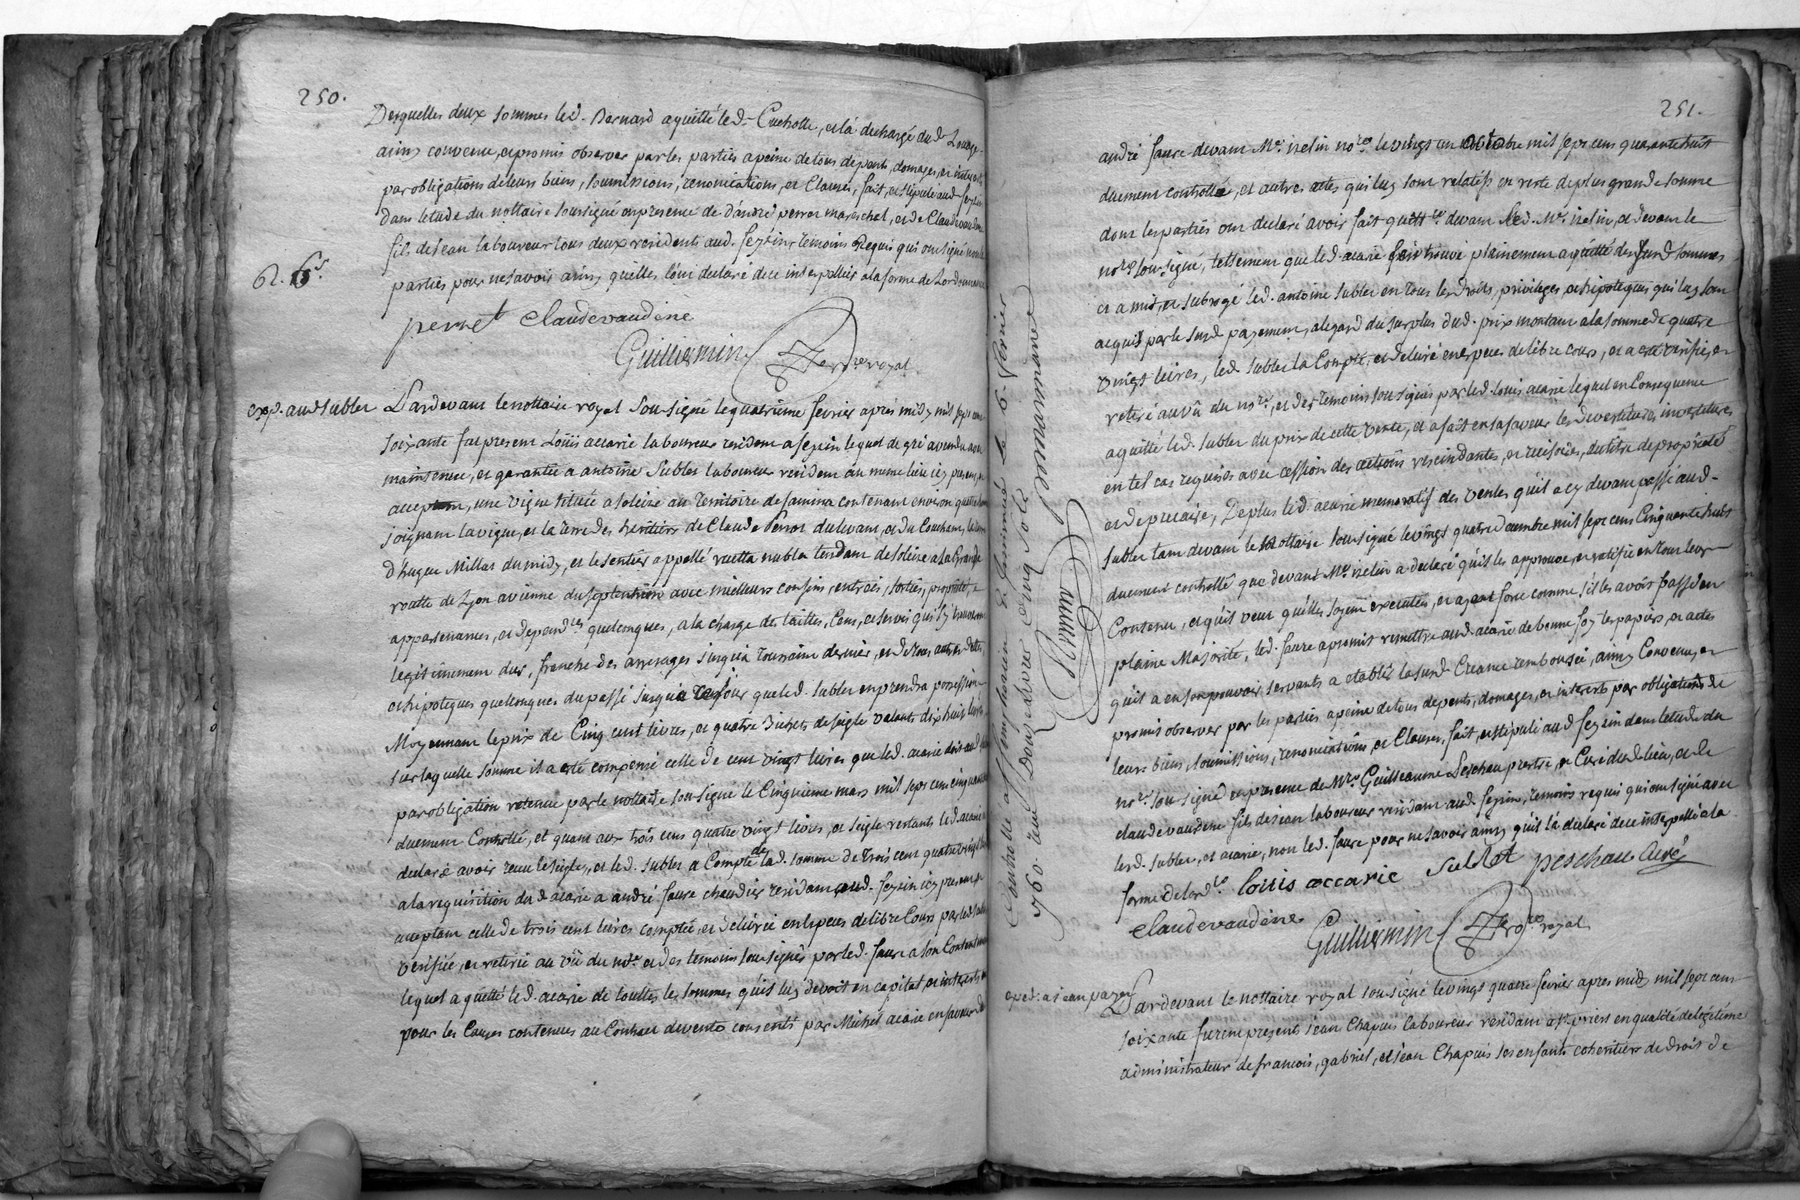 250.
Desquelles deux sommes led. Bernard a quitté led. Cuchotte, et la dechargé dud. Louage
ainsy convenu, et promis observer par les parties a peine de tous depents, domages, et interests
par obligations de leurs biens, soumissions, renonciations, et Clauses, fait, et stipulé aud. feyzin
dans letude du nottaire soussigné en presence de d'andré perret mareschal, et de Claude vaudene
fils de jean laboureur tous deux residents aud. feyzin temoins Requis qui ont signé non les
parties pour ne savoir ainsy quelles l'ont declaré de ce interpellées a la forme de Lordonnance
perret Claudevaudéne
Guillermin no.re royal
exp. aud. Sublet
Pardevant le nottaire royal sousigné le quatrieme fevrier apres midy mil sept cent
soixante fut present Loüis accarie laboureur resident a feyzin lequel de gré a vendu avec
maintenue, et garantie a antoine Sublet laboureur resident au meme lieu icy present, et
acceptant, une vigne située a solèze au territoire de contenant environ quatre
joignant la vigne, et la terre des heritiers de Claude Perrot du levant, et du Couchant, la terre
d'hugue Millat du midy, et le sentier appellé ruetta tendant de solèze a la grande
routte de Lyon a vienne du septentrion avec meilleurs confins, entrées, sorties, proprieté, et
appartenances, et depend.ces quelconques, a la charge des tailles, Cens, et servis qui s'y trouveront
legitimement dus, franche des arrerages jusqu'a toussaint dernier, et de tous autres dettes
et hipoteques quelconques du passé jusqu'a ce jour que led. Sublet en prendra possession
Moyennant le prix de Cinq cent livres, et quatre bichets de seigle valants dix huit livres
sur laquelle somme il a eté compensé celle de cent vingt livres que led. acarie doit aud. Sublet
par obligation retenue par le nottaire sousigné le Cinquieme mars mil sept cent cinquante
duement Controllé, et quant aux trois cent quatre vingt livres, et seigle restants led. acarie a
declaré avoir receu le seigle, et led. Sublet a Compté de lad. somme de trois cent quatre vingt livres
a la requisition dud. acarie a andré faure chaudier resident aud. feyzin icy present et
acceptant celle de trois cent livres comptée, et delivrée en especes de libre Cours par led. Sublet
verifiée, et retirée au vü du no.re et des temoins sousignés par led. faure a son Contentement
lequel a quitté led. acarie de touttes les sommes qu'il luy devoit en capital et interests
pour les Causes contenues au Contract de vente consenti par Michel acarie en faveur dud.
Controllé a S.t Symphorien d'ozon le 6. fevrier
760. livres Cinq sols
251.
andré faure devant M.e no.re le vingt un octobre mil sept cent quarante huit
duement controllé, et autres actes qui luy sont relatifs en reste de plus grande somme
dont les parties ont declaré avoir fait quitt.ce devant led. M.e et devant le
no.re sousigné, tellement que led. acarie se trouve plainement a quitté desd. sommes
et a mis, et subrogé led. antoine Sublet en tous les droits, privileges et hipoteques qu'il luy sont
acquis par le susd. payement, a legard du surplus dud. prix montant a la somme de quatre
vingt livres, led. Sublet la Compté, et delivré en especes de libre cours, et a eté verifié, et
retiré au vû du no.re, et des temoins sousignés par led. louis acarie lequel en Consequence
a quitté led. Sublet du prix de cette vente, et a fait en sa faveur les devestitures investitures
en tel cas requises avec cession des actions rescindantes, et rescisoires, du titre de proprieté
et de precaire, De plus led. acarie memoratif des ventes qu'il a cy devant passé aud.
Sublet tant devant le Nottaire sousigné le vingt quatre mil sept cent Cinquante huit
duement controllé que devant M.e a declaré qu'il les approuve, et ratifie en tout leur
Contenu, et qu'il veut qu'elles soyent executées, et ayent force comme s'il les avoit passé en
plaine Majorité, led. faure a promis remettre aud. acarie de bonne foy les papiers, et actes
qu'il a en son pouvoir servants a etablir la susd. Creance remboursée, ainsy Convenu, et
promis observer par les parties a peine de tous depents, domages, et interests par obligations de
leurs biens soumissions, renonciations, et Clauses, fait, et stipulé aud. feyzin dans letude du
no.re sousigné en presence de M.re Guilleaume Peschau prestre, et Curé dud. lieu, et de
claude vaudene fils de jean laboureur resident aud. feyzin, temoins requis qui ont signé avec
lesd. Sublet, et acarie, non led. faure pour ne savoir ainsy qu'il la declaré de ce interpellé a la
forme de lord.ce louis accarie Sublet peschau Curé
Claudevaudéne Guillermin no.re royal
exped. a jean payen
Pardevant le nottaire royal sousigné le vingt quatre fevrier apres midy mil sept cent
soixante furent presents jean Chapuis laboureur resident a s.t priest en qualité de legitime
administrateur de francois, gabriel, et jean Chapuis ses enfants coheritiers de droit de